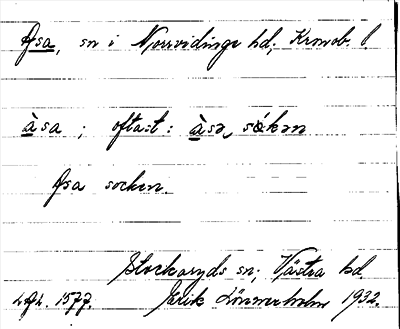 Asa, sn i Norrvidinge hd, Kronob. l.
àsa ; oftast : àsa, sókən
Asa socken.
Stockaryds sn, Västra hd.
Erik Lönnerholm 1932.